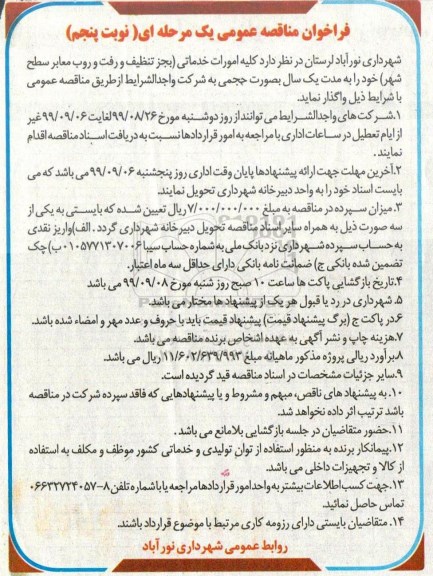 فراخوان مناقصه عمومی یک مرحله ای( نوبت پنجم)
شهرداری نورآباد لرستان در نظر دارد کلیه امورات خدماتی (بجز تنظیف و رفت و روب معابر سطح
شهر) خود را به مدت یک سال بصورت حجمی به شرکت واجدالشرایط از طریق مناقصه عمومی
با شرایط ذیل واگذار نماید.
۱.شرکت های واجدالشرایط می توانند از روز دوشنبه مورخ ۹۹/۰۸/۲۶ لغایت ۹۹/۰۹/۰۶ غیر
از ایام تعطیل در ساعات اداری با مراجعه به امور قراردادها نسبت به دریافت اسناد مناقصه اقدام
نمایند.
۲.آخرین مهلت جهت ارائه پیشنهادها پایان وقت اداری روز پنجشنبه ۹۹/۰۹/۰۶ می باشد که می
بایست اسناد خود را به واحد دبیرخانه شهرداری تحویل نمایند.
۳.میزان سپرده در مناقصه به مبلغ ۷/۰۰۰/۰۰۰/۰۰۰ ریال تعیین شده که بایستی به یکی از
سه صورت ذیل به همراه سایر اسناد مناقصه تحویل دبیرخانه شهرداری گردد . الف)واریز نقدی
به حساب سپرده شهرداری نزد بانک ملی به شماره حساب سیبا ۰۱۰۵۷۷۱۳۰۷۰۰۶ ب) چک
تضمین شده بانکی ج) ضمانت نامه بانکی دارای حداقل سه ماه اعتبار.
۴.تاریخ بازگشایی پاکت ها ساعت ۱۰ صبح روز شنبه مورخ ۹۹/۰۹/۰۸ می باشد
۵.شهرداری در رد یا قبول هر یک از پیشنهاد ها مختار می باشد.
۶.در پاکت ج (برگ پیشنهاد قیمت) پیشنهاد قیمت باید با حروف و عدد مهر و امضاء شده باشد.
۷.هزینه چاپ و نشر آگهی به عهده اشخاص برنده مناقصه می باشد.
۸.برآورد ریالی پروژه مذکور ماهیانه مبلغ ۱۱/۶۰۲/۶۳۹/۹۹۳ ریال می باشد.
۹.سایر جزئیات مشخصات در اسناد مناقصه قید گردیده است.
۱۰. به پیشنهاد های ناقص، مبهم و مشروط و یا پیشنهادهایی که فاقد سپرده شرکت در مناقصه
باشد ترتیب اثر داده نخواهد شد.
۱۱.حضور متقاضیان در جلسه بازگشایی بلامانع می باشد.
۱۲.پیمانکار برنده به منظور استفاده از توان تولیدی و خدماتی کشور موظف و مکلف به استفاده
از کالا و تجهیزات داخلی می باشد.
۱۳.جهت کسب اطلاعات بیشتر به واحد امور قراردادها مراجعه یا با شماره تلفن ۸-۰۶۶۳۲۷۲۴۰۵۷
تماس حاصل نمائید.
۱۴. متقاضیان بایستی دارای رزومه کاری مرتبط با موضوع قرارداد باشند.
روابط عمومی شهرداری نورآباد